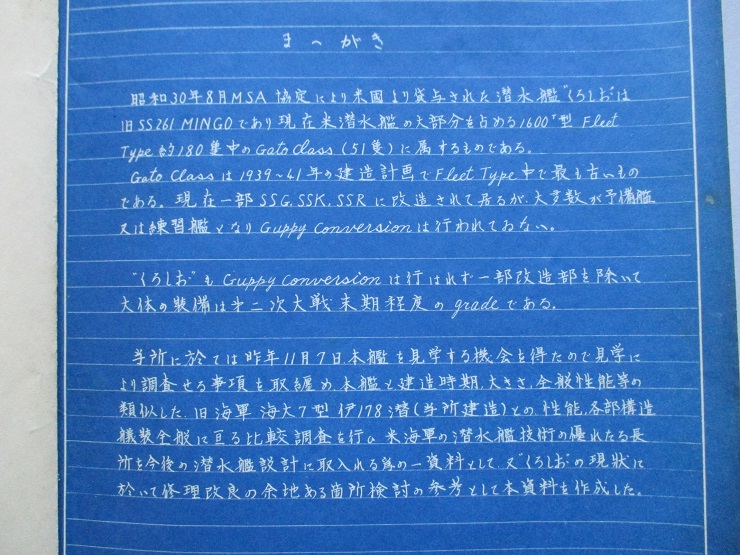 まへがき
昭和30年8月MSA協定により米國より貸与された潜水艦"くろしお"は
旧SS261 MINGOであり現在米潜水艦の大部分を占める1600T型 Fleet
Type 約180隻中のGato Class (51隻)に属するものである。
Gato Classは1939~41年の建造計画でFleet Type中で最も古いもの
である。現在一部SSG, SSK, SSRに改造されて居るが、大多数が予備艦
又は練習艦となりGuppy Conversionは行われておない。
"くろしお"もGuppy Conversionは行はれず一部改造部を除いて
大体の装備は才二次大戦末期程度のgradeである。
当所に於ては昨年11月7日本艦を見学する機会を得たので見学に
より調査せる事項を取纏め、本艦と建造時期、大きさ、全般性能等の
類似した、旧海軍 海大7型 伊178潜(当所建造)との、性能、各部構造
艤装全般に亘る比較調査を行い米海軍の潜水艦技術の優れたる長
所を今後の潜水艦設計に取入れる為の一資料として、又"くろしお"の現状に
於いて修理改良の余地ある箇所検討の参考として本資料を作成した。